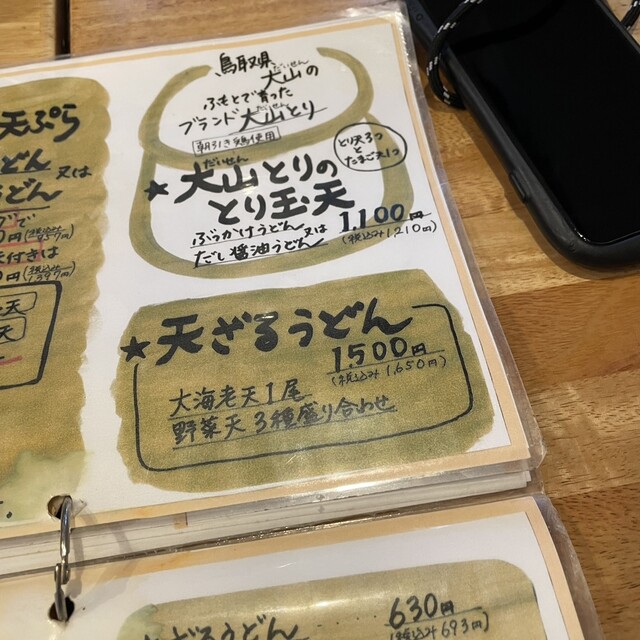 天ぷら
どん 又は
うどん
鳥取県 大山の
だいせん
ふもとで育った
だいせん
ブランド大山とり
朝引き鶏使用
だいせん
★大山とりの
とり玉天
とり天3つ
と
たまご天1つ
ぶっかけうどん 又は
だし醤油うどん
1,100円
(税込み1,210円)
★天ざるうどん
1,500円
(税込み1,650円)
大海老天1尾
野菜天3種盛り合わせ
ざるうどん
630円
(税込み693円)